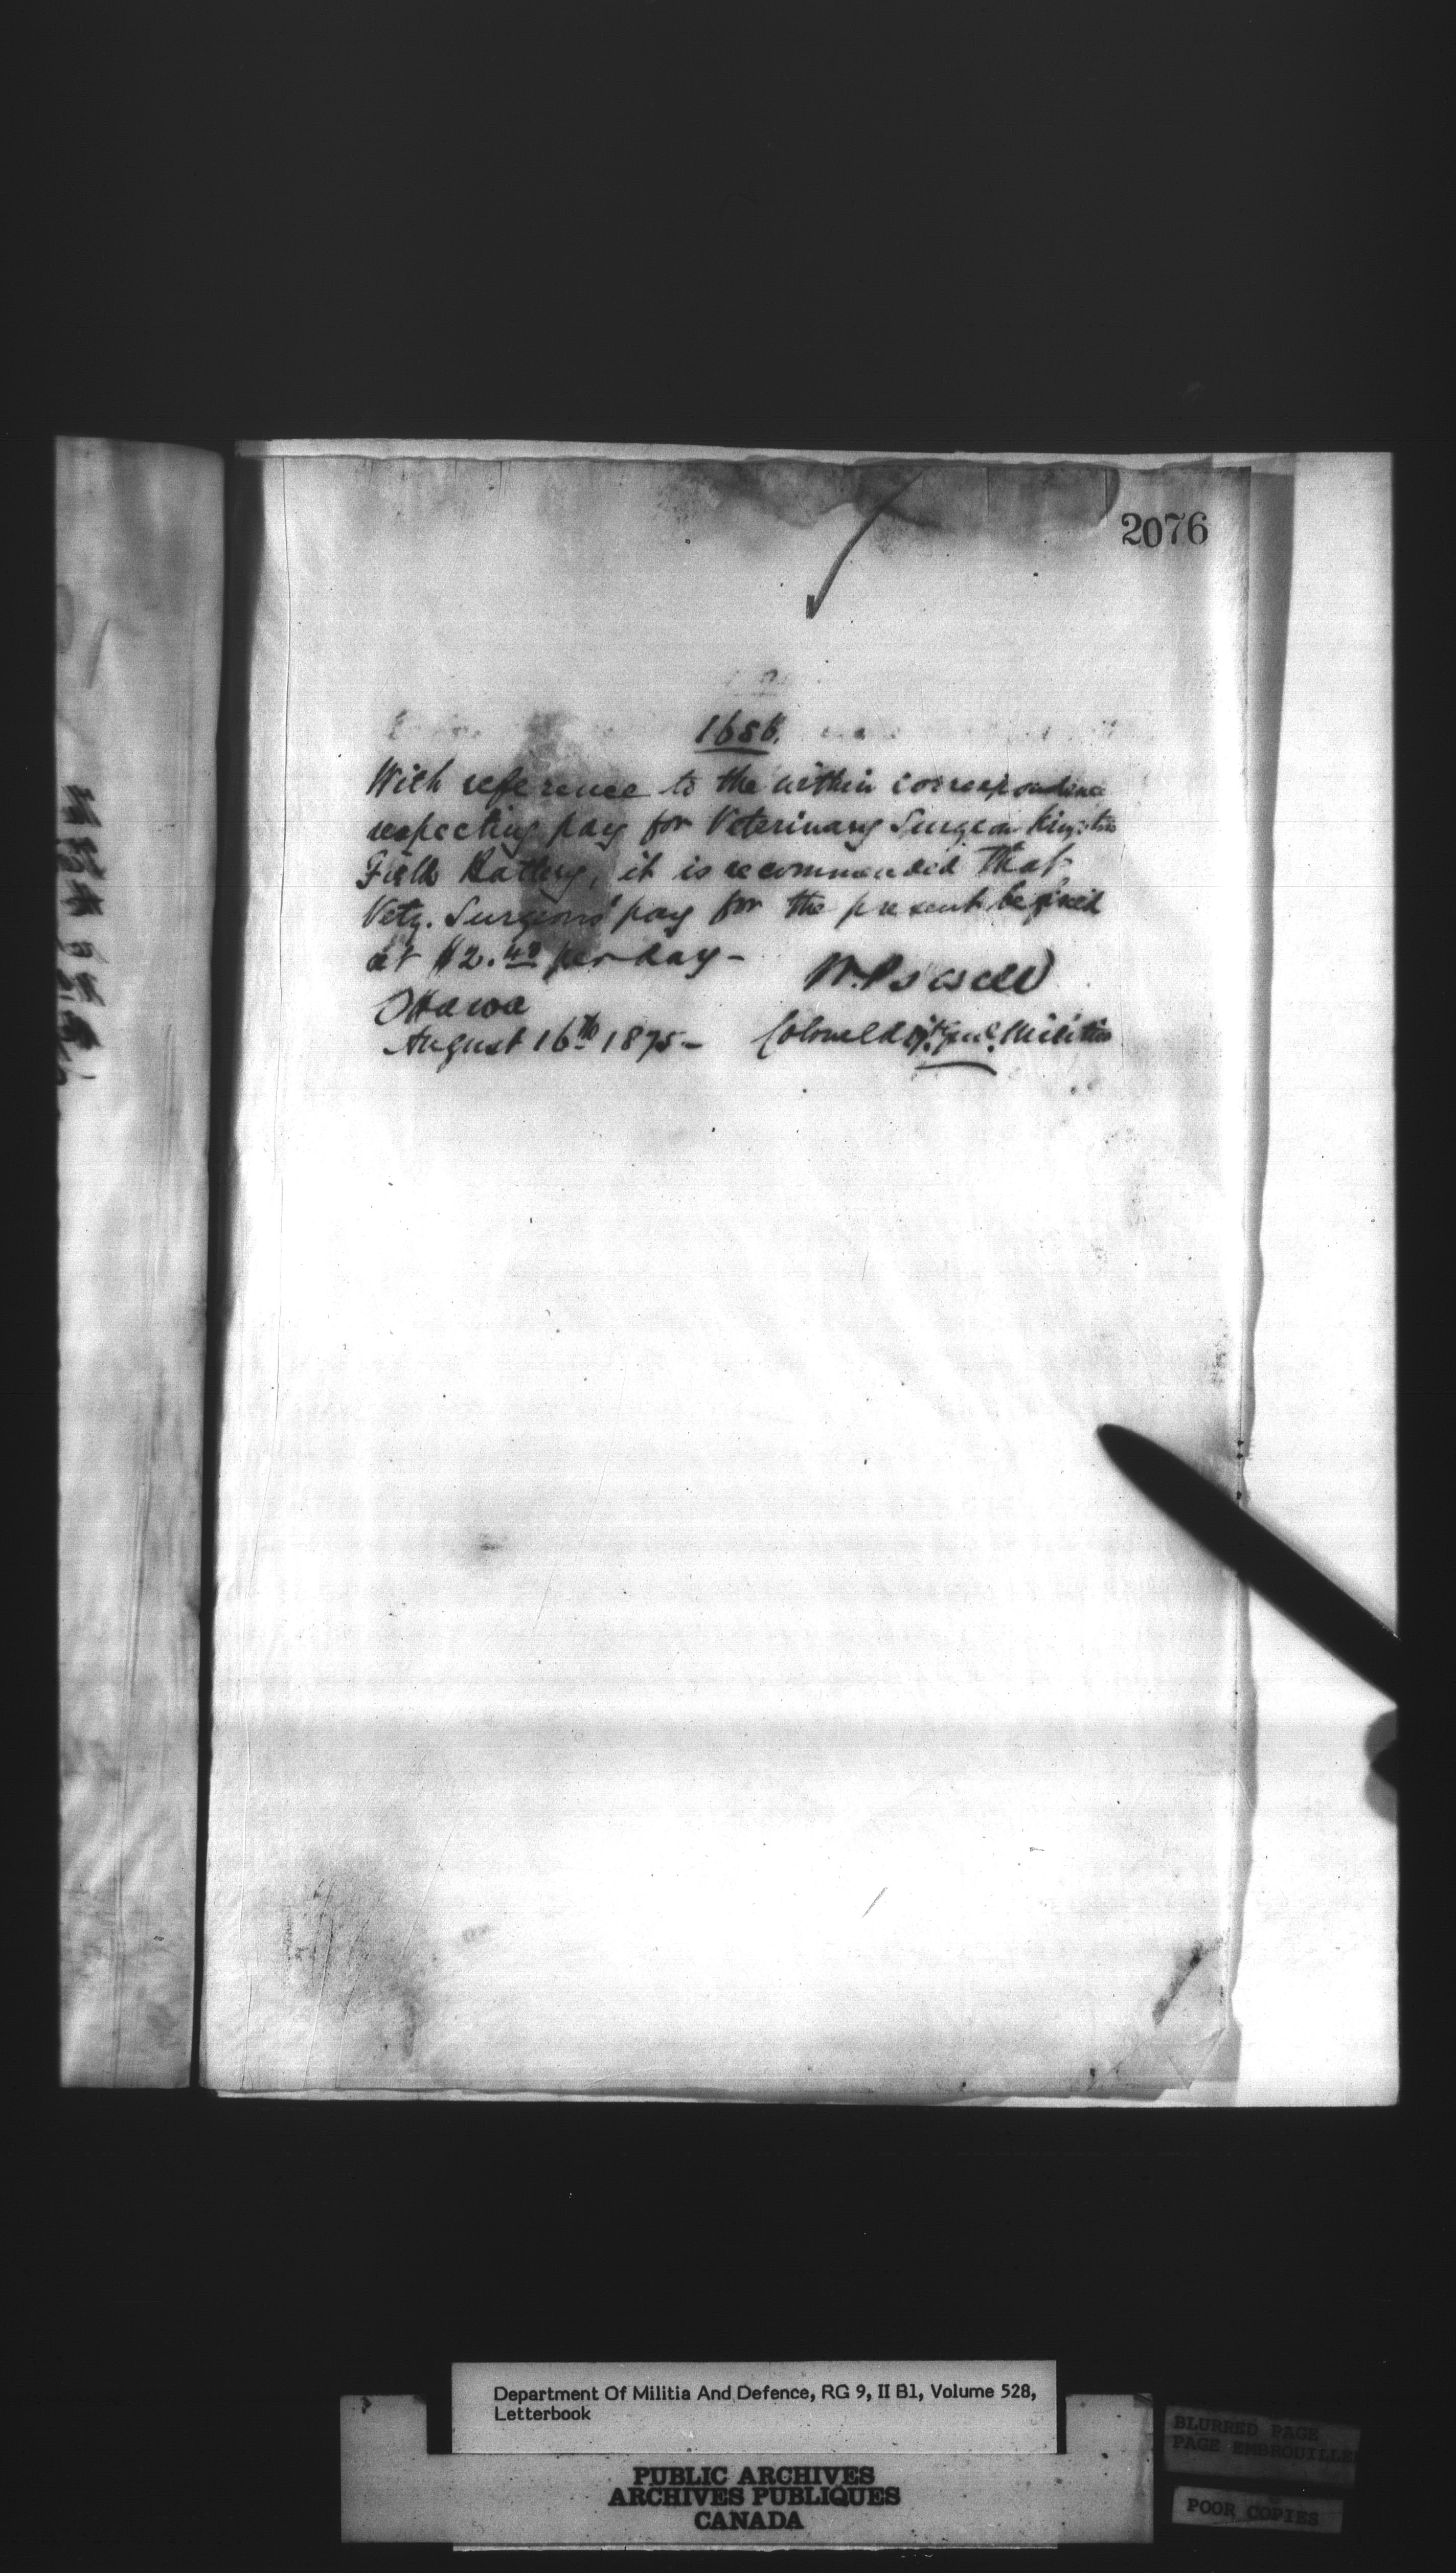 2076
1686.
With reference to the within correspondence
respecting pay for Veterinary Surgeon Kingston
Field Battery, it is recommended that
Vety. Surgeons' pay for the present be fixed
at $2.40 per day -
W. Powell
Ottawa
August 16th 1875 - Colonel Adjt. Genl. Militia
Department Of Militia And Defence, RG 9, II B1, Volume 528,
Letterbook
PUBLIC ARCHIVES
ARCHIVES PUBLIQUES
CANADA
BLURRED PAGE
PAGE EMBROUILLE
POOR COPIES